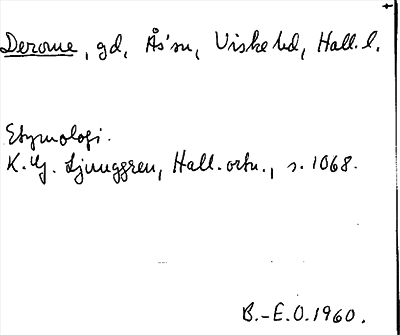 Derome, gd, Ås'sn, Viske hd, Hall. l.
Etymologi.
K. G. Ljunggren, Hall. ortn., s. 1068.
B.-E.O. 1960.